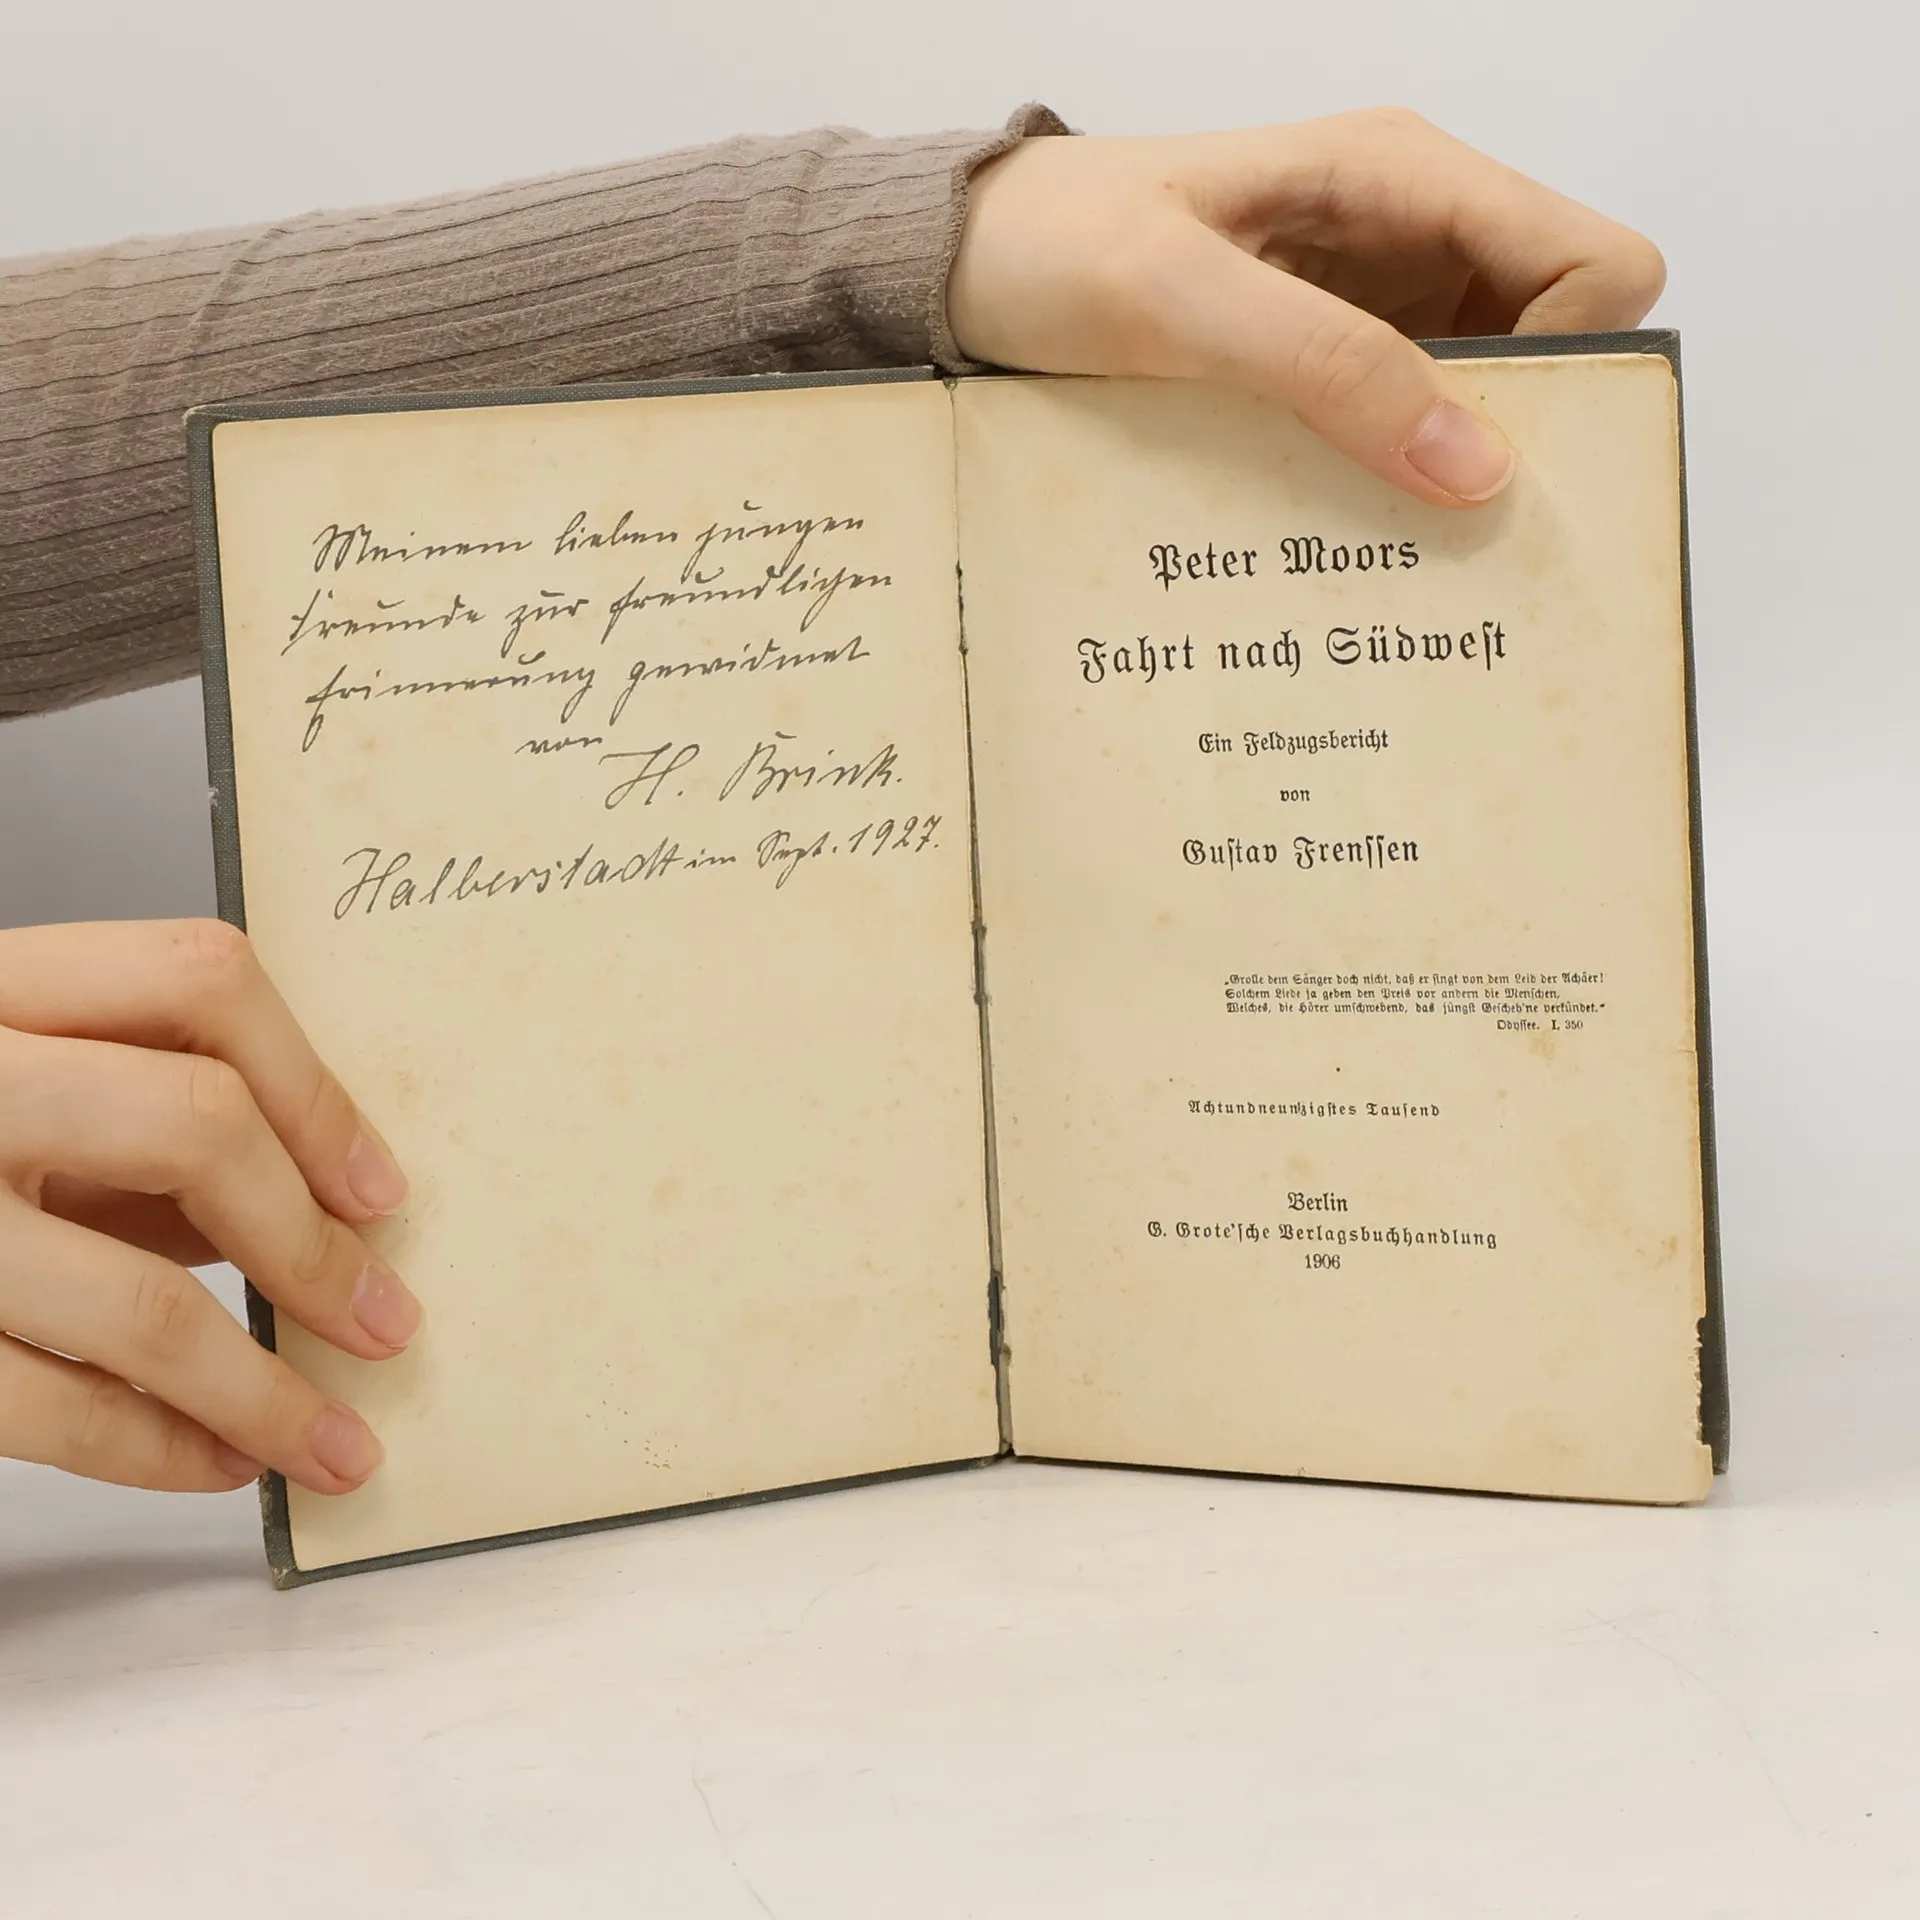 Meinem lieben jungen
Freunde zur freundlichen
Erinnerung gewidmet
von
H. Brink.
Halberstadt im Sept. 1927.
Peter Moors
Fahrt nach Südwest
Ein Feldzugsbericht
von
Gustav Frenssen
„Grolle dem Sänger doch nicht, daß er singt von dem Leid der Achäer!
Solchem Liede ja geben den Preis vor andern die Menschen,
Welches, die Hörer umschwebend, das jüngst Gescheh'ne verkündet.“
Odyssee. I, 350
Achtundneunzigstes Tausend
Berlin
G. Grote'sche Verlagsbuchhandlung
1906